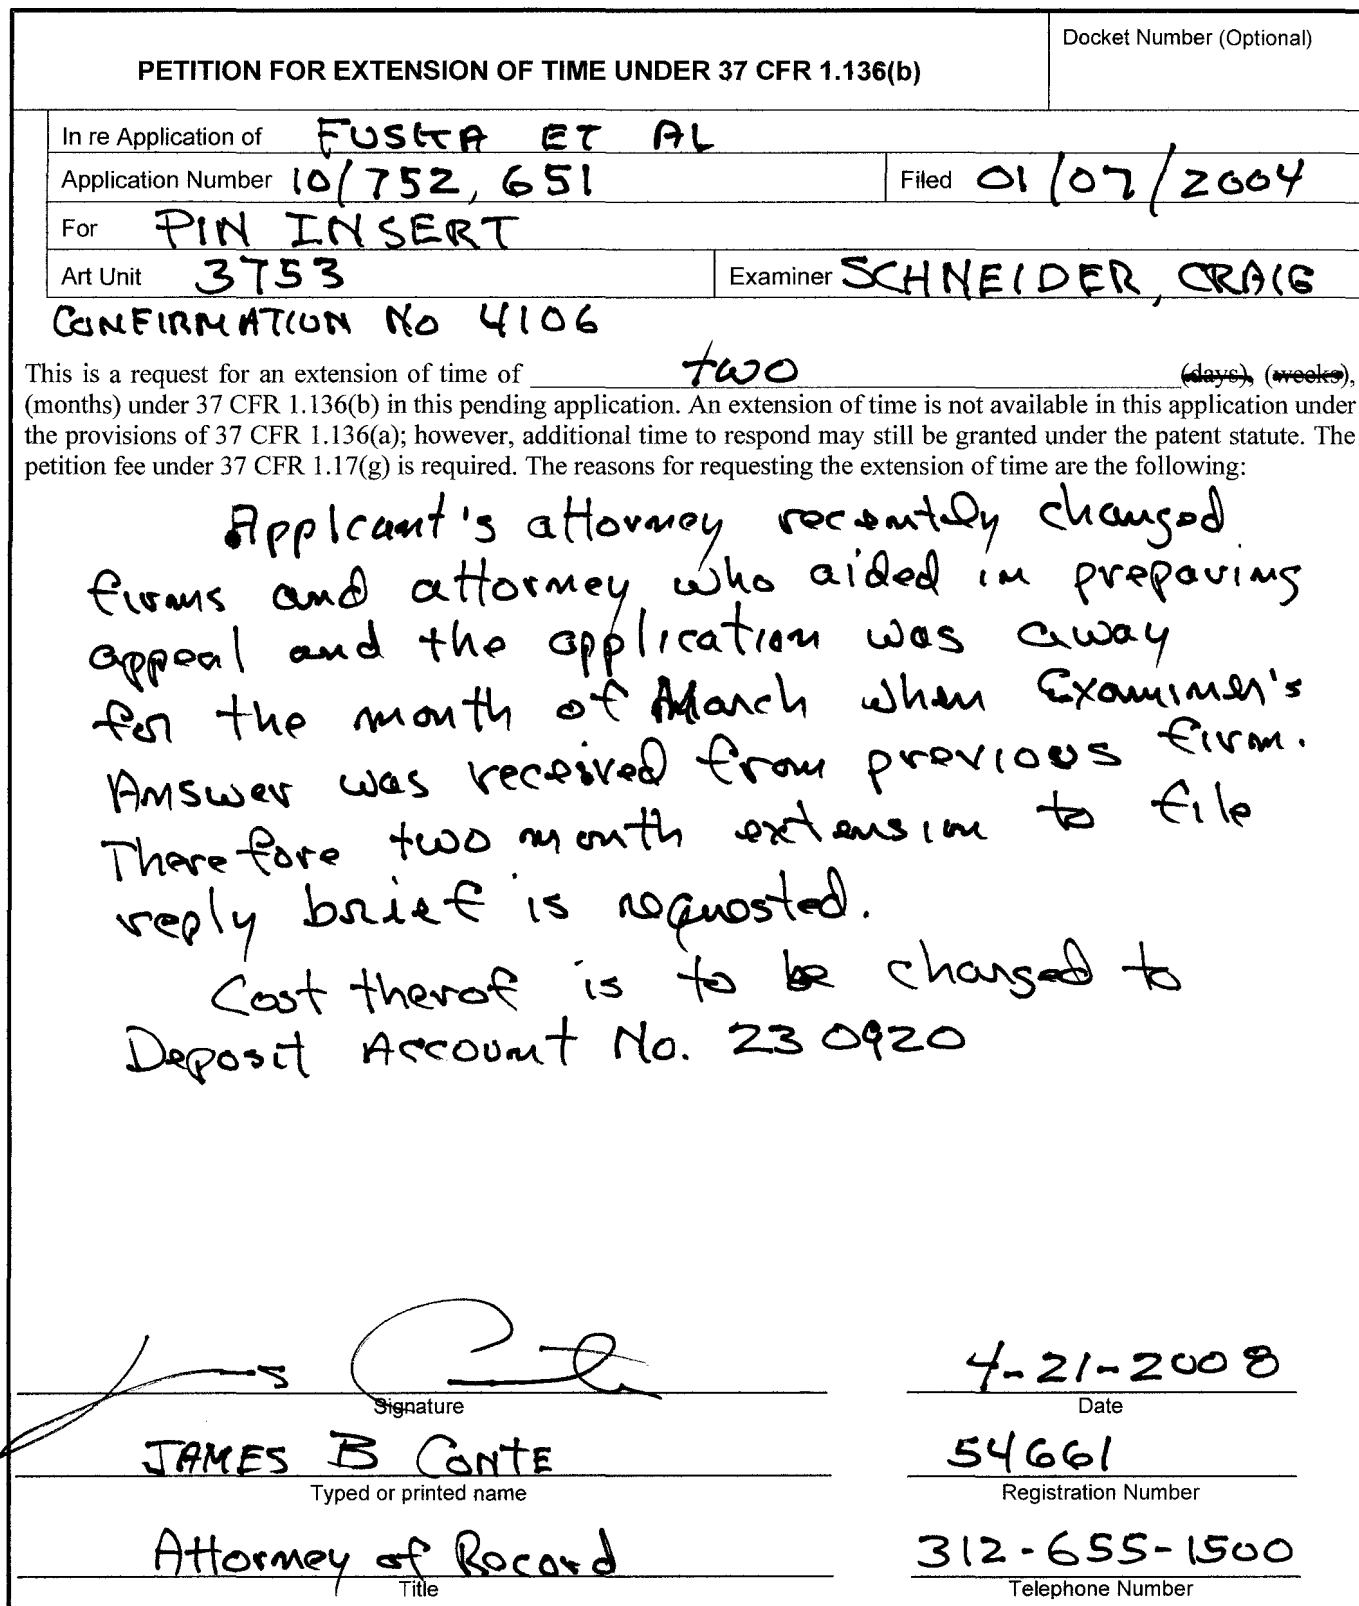 Docket Number (Optional)
PETITION FOR EXTENSION OF TIME UNDER 37 CFR 1.136(b)
In re Application of FUSKA ET AL
Application Number 10/752,651 Filed 01/07/2004
For PIN INSERT
Art Unit 3753 Examiner SCHNEIDER, CRAIG
CONFIRMATION No 4106
This is a request for an extension of time of two (days), (weeks),
(months) under 37 CFR 1.136(b) in this pending application. An extension of time is not available in this application under
the provisions of 37 CFR 1.136(a); however, additional time to respond may still be granted under the patent statute. The
petition fee under 37 CFR 1.17(g) is required. The reasons for requesting the extension of time are the following:
Applcant's attorney recently changed
firms and attorney who aided in preparing
appeal and the application was away
for the month of March when Examiner's
Answer was received from previous firm.
Therefore two month extension to file
reply brief is requested.
Cost therof is to be charged to
Deposit Account No. 23 0920
4-21-2008
Signature Date
JAMES B CONTE 54661
Typed or printed name Registration Number
Attorney of Record 312-655-1500
Title Telephone Number